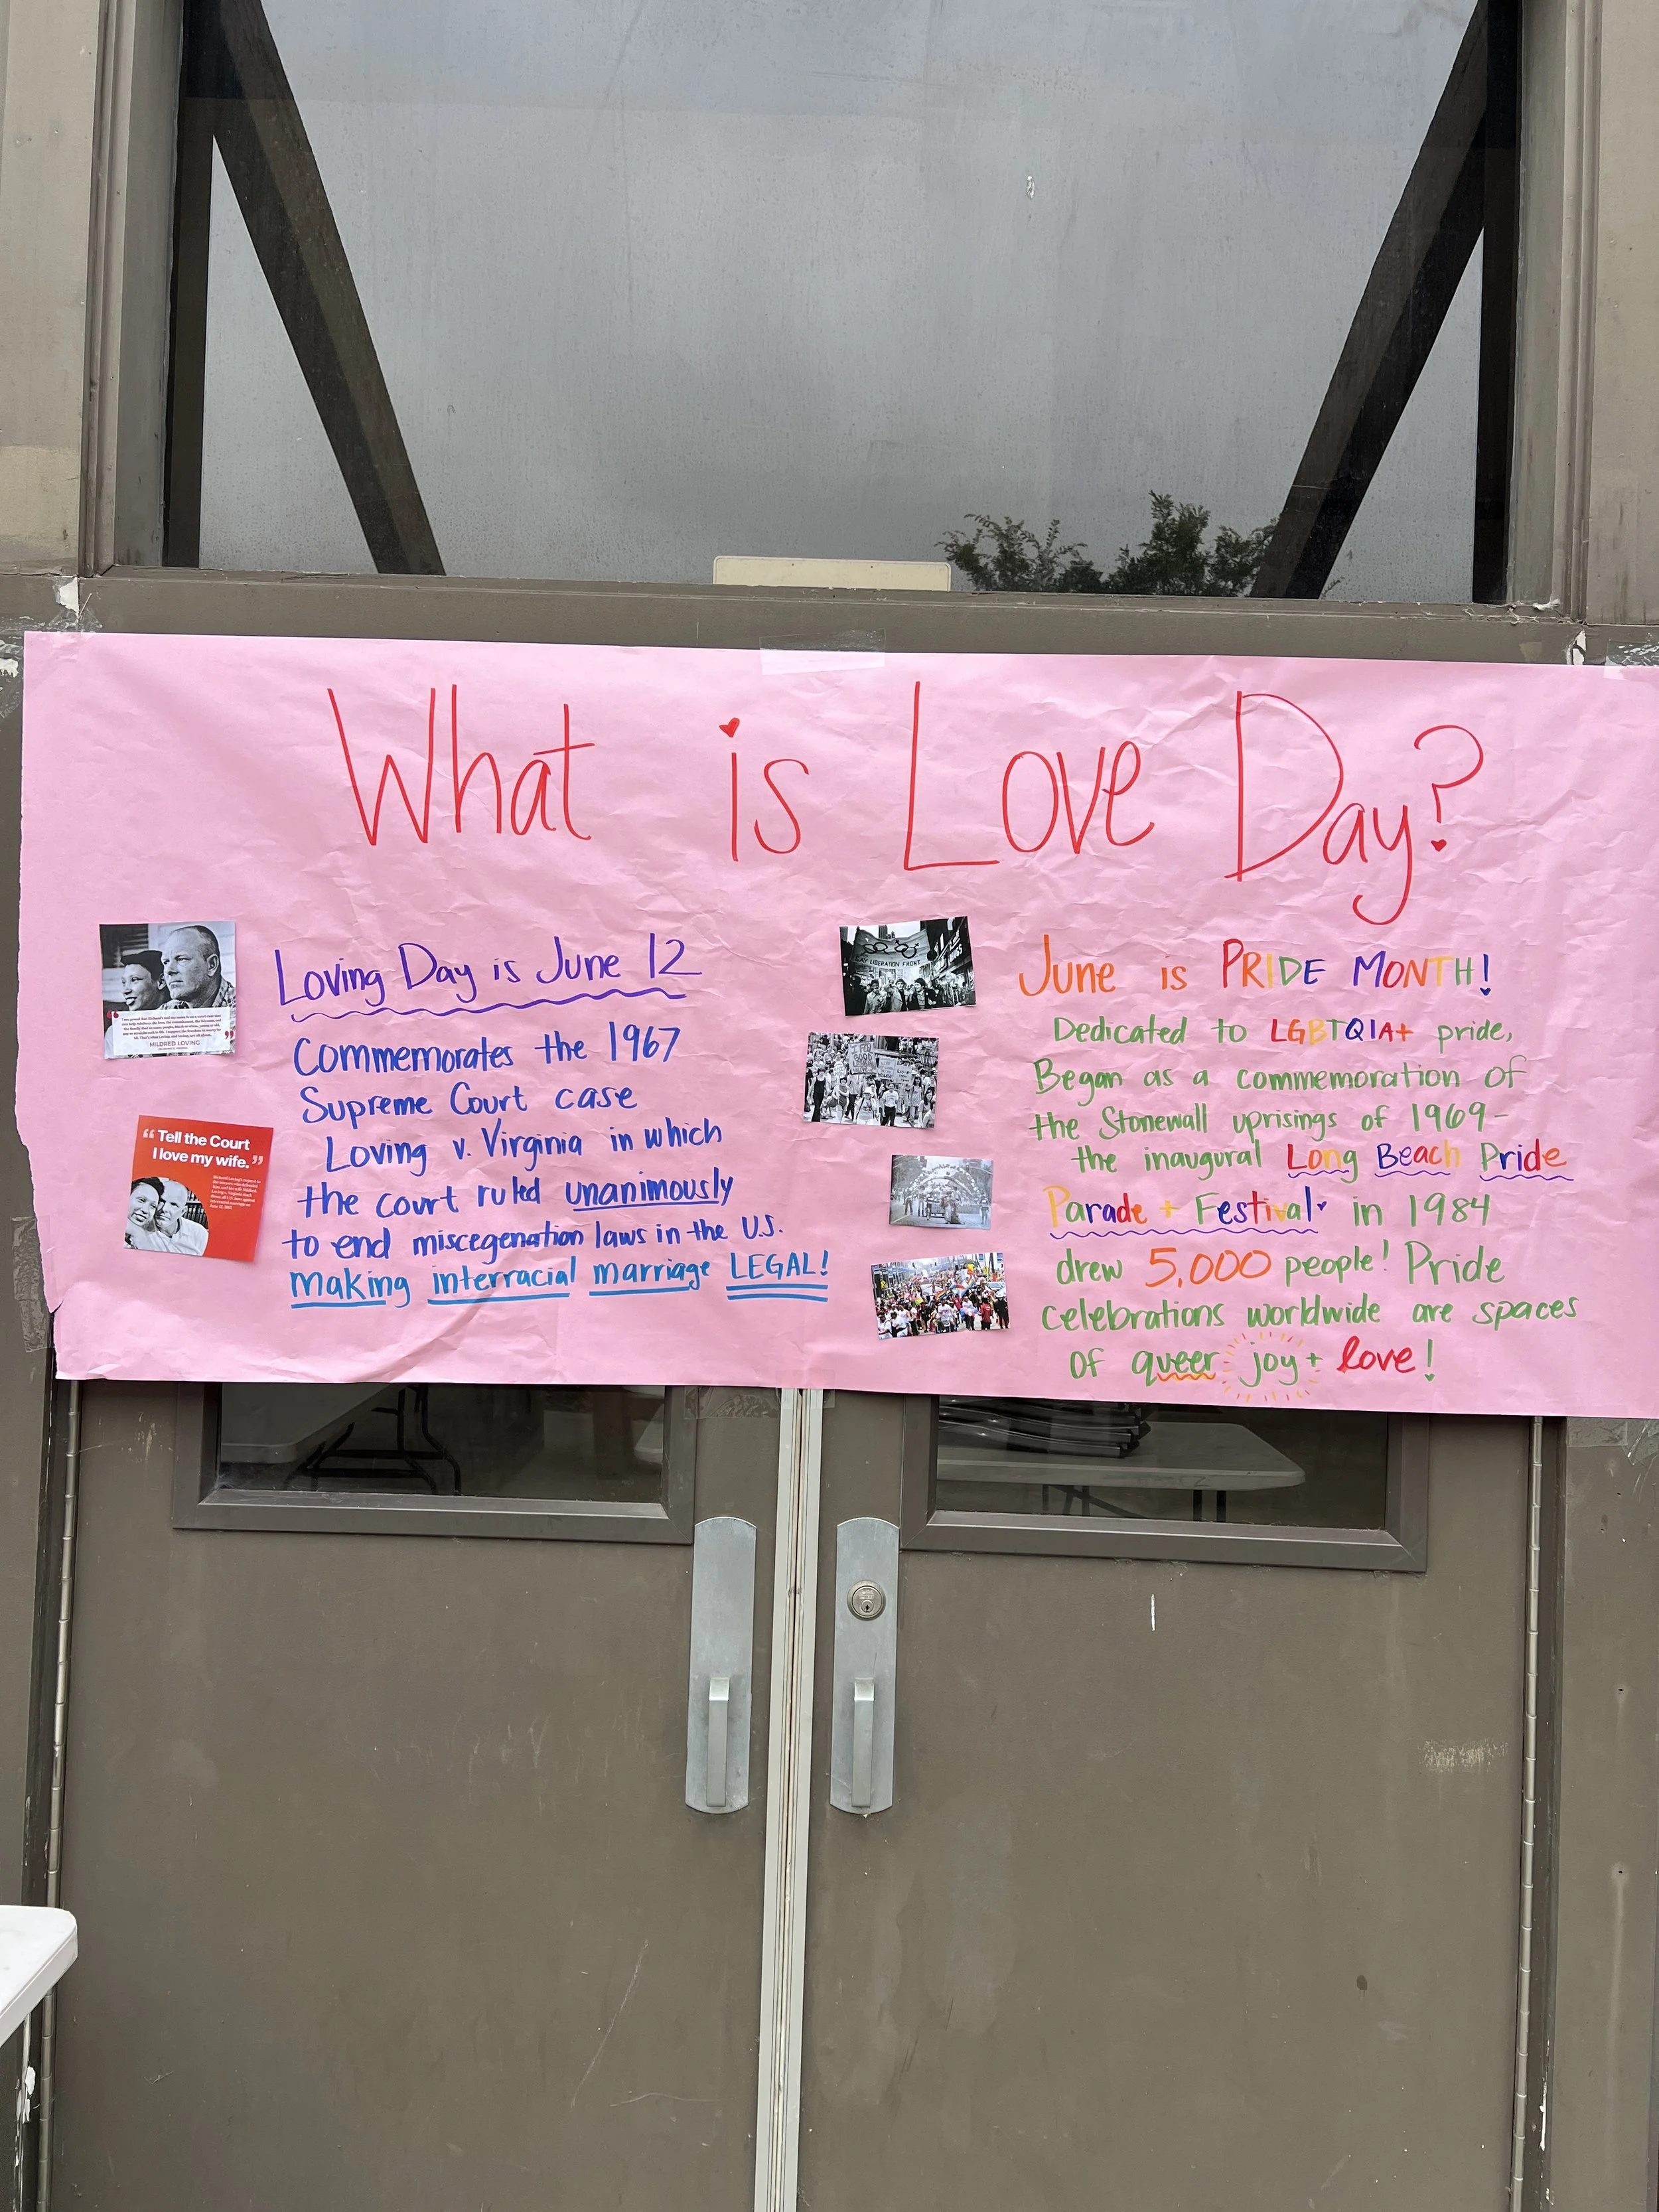 What is Love Day?
Loving Day is June 12
Commemorates the 1967
Supreme Court case
Loving v. Virginia in which
the court ruled unanimously
to end miscegenation laws in the U.S.
making interracial marriage LEGAL!
MILDRED LOVING
“Tell the Court
I love my wife.”
June is PRIDE MONTH!
Dedicated to LGBTQIA+ pride,
Began as a commemoration of
the Stonewall uprisings of 1969-
the inaugural Long Beach Pride
Parade + Festival in 1984
drew 5,000 people! Pride
celebrations worldwide are spaces
of queer joy + love!
GAY LIBERATION FRONT